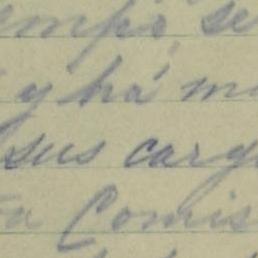 empo se
y há m
sus carg
Comis